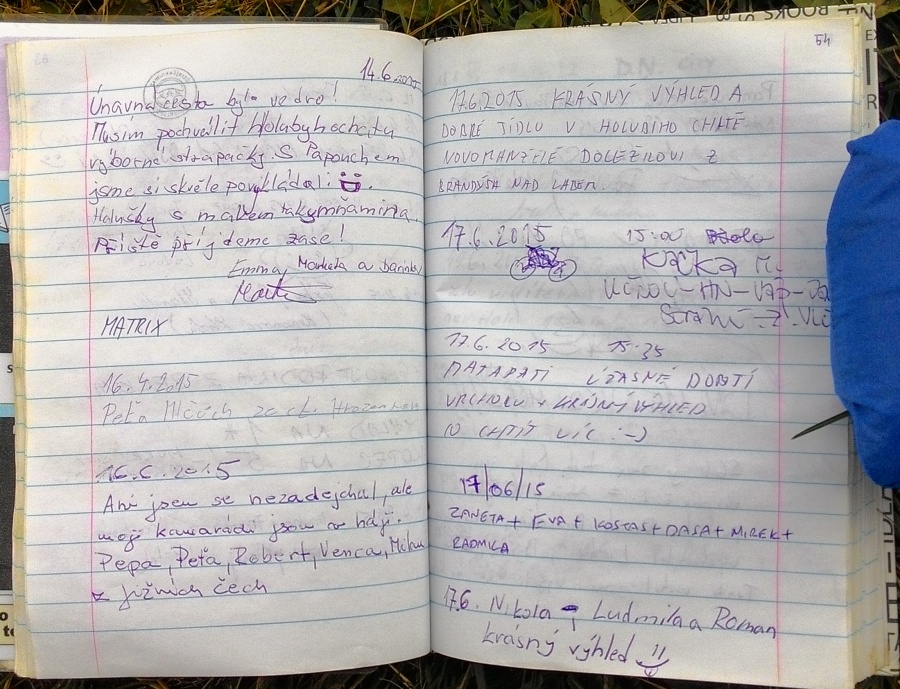 14.6.2015
Únavná cesta byla vedro!
Musím pochválit Holubyho chatu
výborné strapačky. S Papouchem
jsme si skvěle povykládali
Halušky s mákem taky mňamina.
Příště příjdeme zase!
Emma, Marketa a
MATRIX
16.4.2015
Peťa
16.6.2015
Ani jsem se nezadejchal, ale
moji kamarádi jsou v háji.
Pepa, Peťa, Robert, Venca, Milan
z jižních čech
54
17.6.2015 KRASNÝ VÝHLED A
DOBRÉ JÍDLO V HOLUBÍHO CHATĚ
NOVOMANŽELÉ DOLEŽILOVI Z
BRANDÝSA NAD LABEM.
17.6.2015 15:00
KAČKA
17.6.2015 15:35
ÚŽASNÉ DOBYTÍ
VRCHOLU + KRÁSNÝ VÝHLED
CO CHTÍT VÍC :-)
17/06/15
ZANETA + EVA + KOSTAS + DASA + MIREK +
RADMILA
17.6. Nikola, Ludmila a Roman
krásný výhled